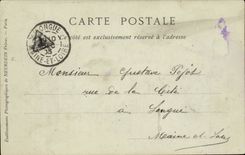 CARTE POSTALE
Ce côté est exclusivement réservé à l'adresse
LONGUÉ
MAINE-ET-LOIRE
Monsieur Gustave
rue de la Cité
à Longué
Maine et Loire
Etablissements Photographiques de NEURDEIN Frères. — Paris